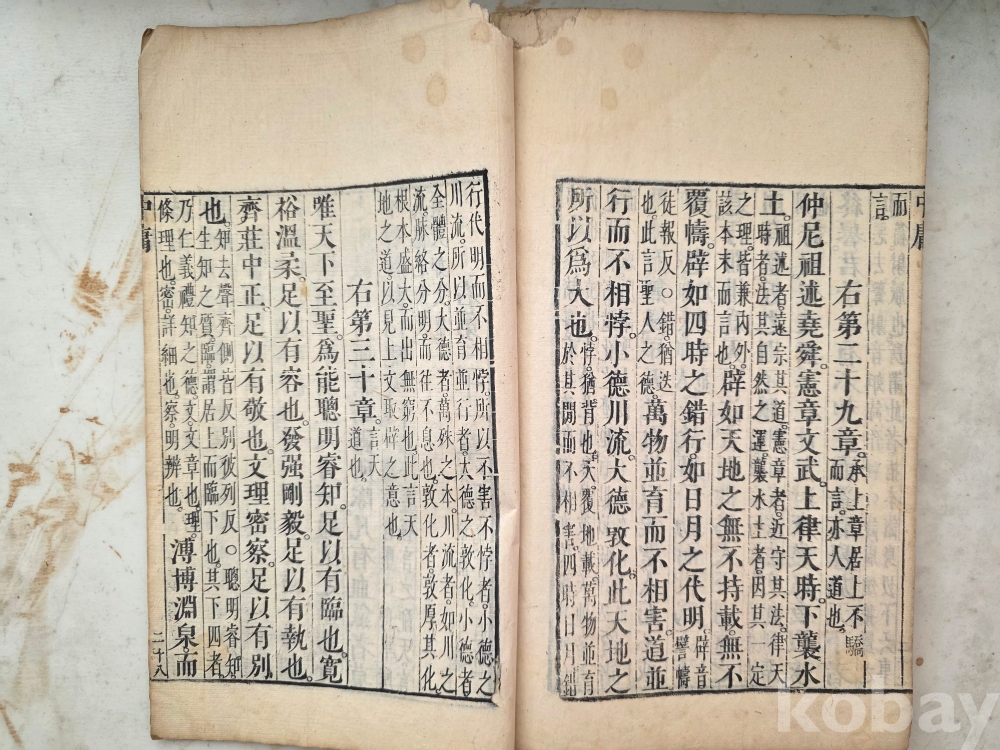 中庸
而
言。
右第二十九章。
承上章居上不驕
而言。亦人道也。
仲尼祖述堯舜。憲章文武。上律天時。下襲水
土。
祖述者遠宗其道。憲章者。近守其法。律天
時者。法其自然之運。襲水土者。因其一定
之理。皆兼內外
該本末而言也。
辟如天地之無不持載。無不
覆幬。辟如四時之錯行。如日月之代明。
辟音
譬幬
徒報反。○錯。猶迭
也。此言聖人之德。
萬物並育而不相害。道並
行而不相悖。小德川流。大德敦化。此天地之
所以爲大也。
悖。猶背也。天覆地載。萬物並育
於其間而不相害。四時日月錯
行代明而不相悖。所以不害不悖者。小德之
川流。所以並育並行者。大德之敦化。小德者
全體之分。大德者。萬殊之本。川流者。如川之
流。脈絡分明而往不息也。敦化者。敦厚其化
根本盛大。而出無窮也。此言天
地之道以見上文取辟之意也
右第三十章。
言天
道也。
唯天下至聖。爲能聰明睿知。足以有臨也。寬
裕溫柔。足以有容也。發强剛毅。足以有執也。
齊莊中正。足以有敬也。文理密察。足以有別
也。
知去聲齊側皆反別彼列反。○聰明睿知
生知之質。臨。謂居上而臨下也。其下四者
乃仁義禮知之德。文。文章也。理。
條理也。密。詳細也。察。明辨也。
溥博淵泉。而
中庸
二十八
kobay